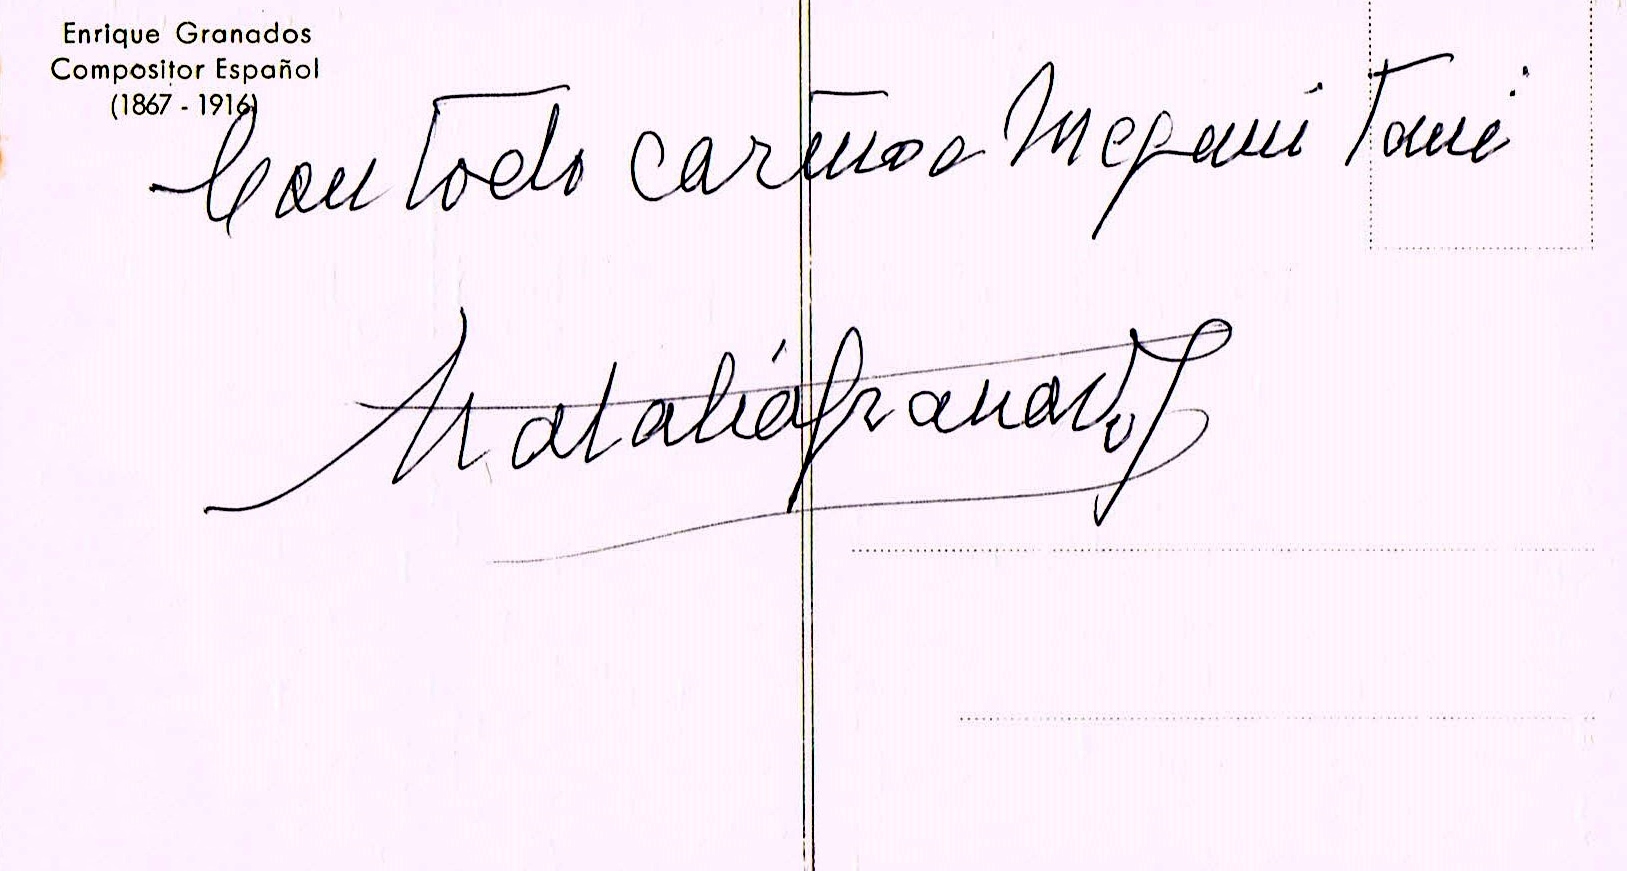 Enrique Granados
Compositor Español
(1867 - 1916)
Con todo cariño a Megumi Tani
Natalia Granados